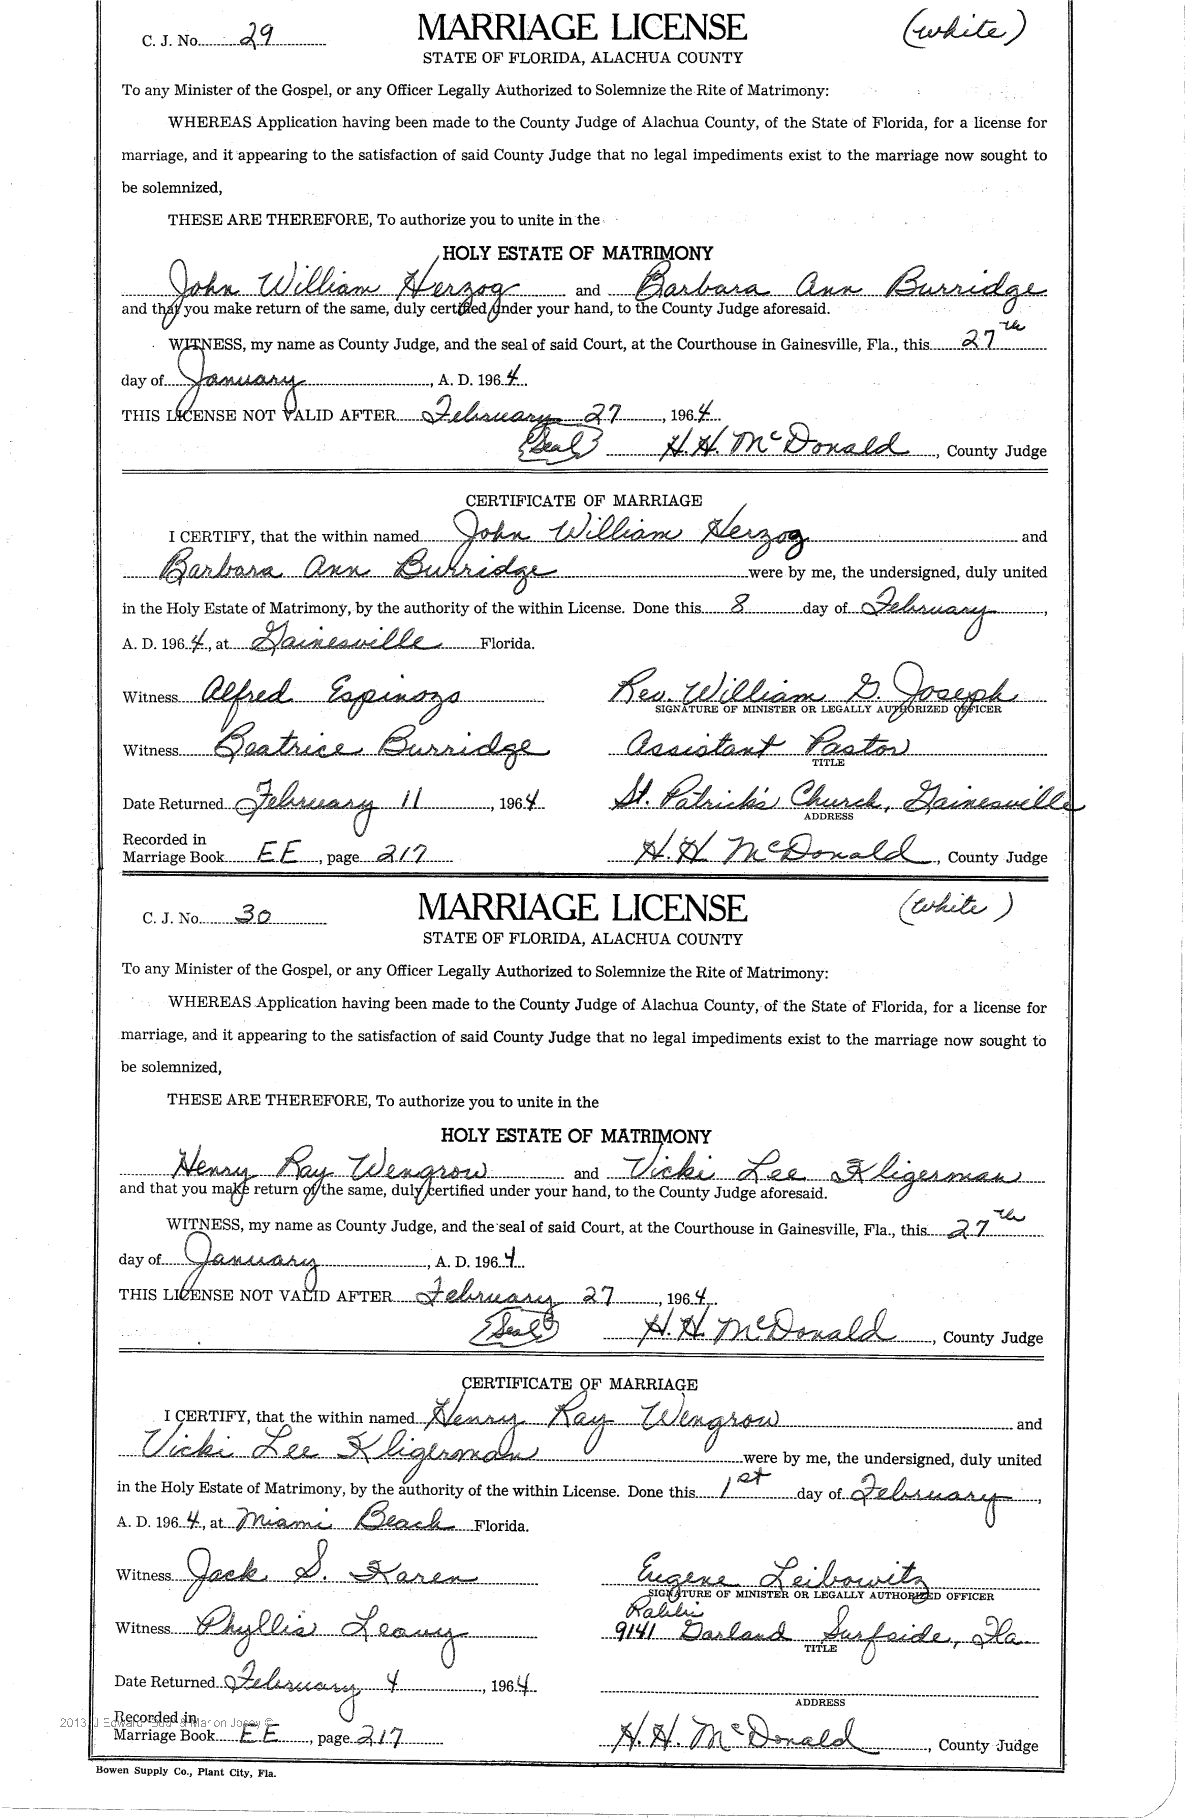 C. J. No. 29 MARRIAGE LICENSE (white)
STATE OF FLORIDA, ALACHUA COUNTY
To any Minister of the Gospel, or any Officer Legally Authorized to Solemnize the Rite of Matrimony:
WHEREAS Application having been made to the County Judge of Alachua County, of the State of Florida, for a license for
marriage, and it appearing to the satisfaction of said County Judge that no legal impediments exist to the marriage now sought to
be solemnized,
THESE ARE THEREFORE, To authorize you to unite in the
HOLY ESTATE OF MATRIMONY
John William Herzog and Barbara Ann Burridge
and that you make return of the same, duly certified under your hand, to the County Judge aforesaid.
WITNESS, my name as County Judge, and the seal of said Court, at the Courthouse in Gainesville, Fla., this 27th
day of January, A. D. 1964
THIS LICENSE NOT VALID AFTER February 27, 1964
(Seal) H. H. McDonald, County Judge
CERTIFICATE OF MARRIAGE
I CERTIFY, that the within named John William Herzog and
Barbara Ann Burridge were by me, the undersigned, duly united
in the Holy Estate of Matrimony, by the authority of the within License. Done this 8 day of February,
A. D. 1964, at Gainesville Florida.
Witness Alfred Espinozo Rev. William G. Joseph
SIGNATURE OF MINISTER OR LEGALLY AUTHORIZED OFFICER
Witness Beatrice Burridge Assistant Pastor
TITLE
Date Returned February 11, 1964 St. Patrick's Church, Gainesville
ADDRESS
Recorded in
Marriage Book EE, page 217 H. H. McDonald, County Judge
C. J. No. 30 MARRIAGE LICENSE (white)
STATE OF FLORIDA, ALACHUA COUNTY
To any Minister of the Gospel, or any Officer Legally Authorized to Solemnize the Rite of Matrimony:
WHEREAS Application having been made to the County Judge of Alachua County, of the State of Florida, for a license for
marriage, and it appearing to the satisfaction of said County Judge that no legal impediments exist to the marriage now sought to
be solemnized,
THESE ARE THEREFORE, To authorize you to unite in the
HOLY ESTATE OF MATRIMONY
Henry Ray Wengrow and Vicki Lee Kligerman
and that you make return of the same, duly certified under your hand, to the County Judge aforesaid.
WITNESS, my name as County Judge, and the seal of said Court, at the Courthouse in Gainesville, Fla., this 27th
day of January, A. D. 1964
THIS LICENSE NOT VALID AFTER February 27, 1964
(Seal) H. H. McDonald, County Judge
CERTIFICATE OF MARRIAGE
I CERTIFY, that the within named Henry Ray Wengrow and
Vicki Lee Kligerman were by me, the undersigned, duly united
in the Holy Estate of Matrimony, by the authority of the within License. Done this 1st day of February,
A. D. 1964, at Miami Beach Florida.
Witness Jack S. Karen Eugene Leibowitz
SIGNATURE OF MINISTER OR LEGALLY AUTHORIZED OFFICER
Rabbi
Witness Phyllis Leavy 9141 Garland Surfside, Fla.
TITLE
Date Returned February 4, 1964
ADDRESS
Recorded in
Marriage Book EE, page 217 H. H. McDonald, County Judge
Bowen Supply Co., Plant City, Fla.